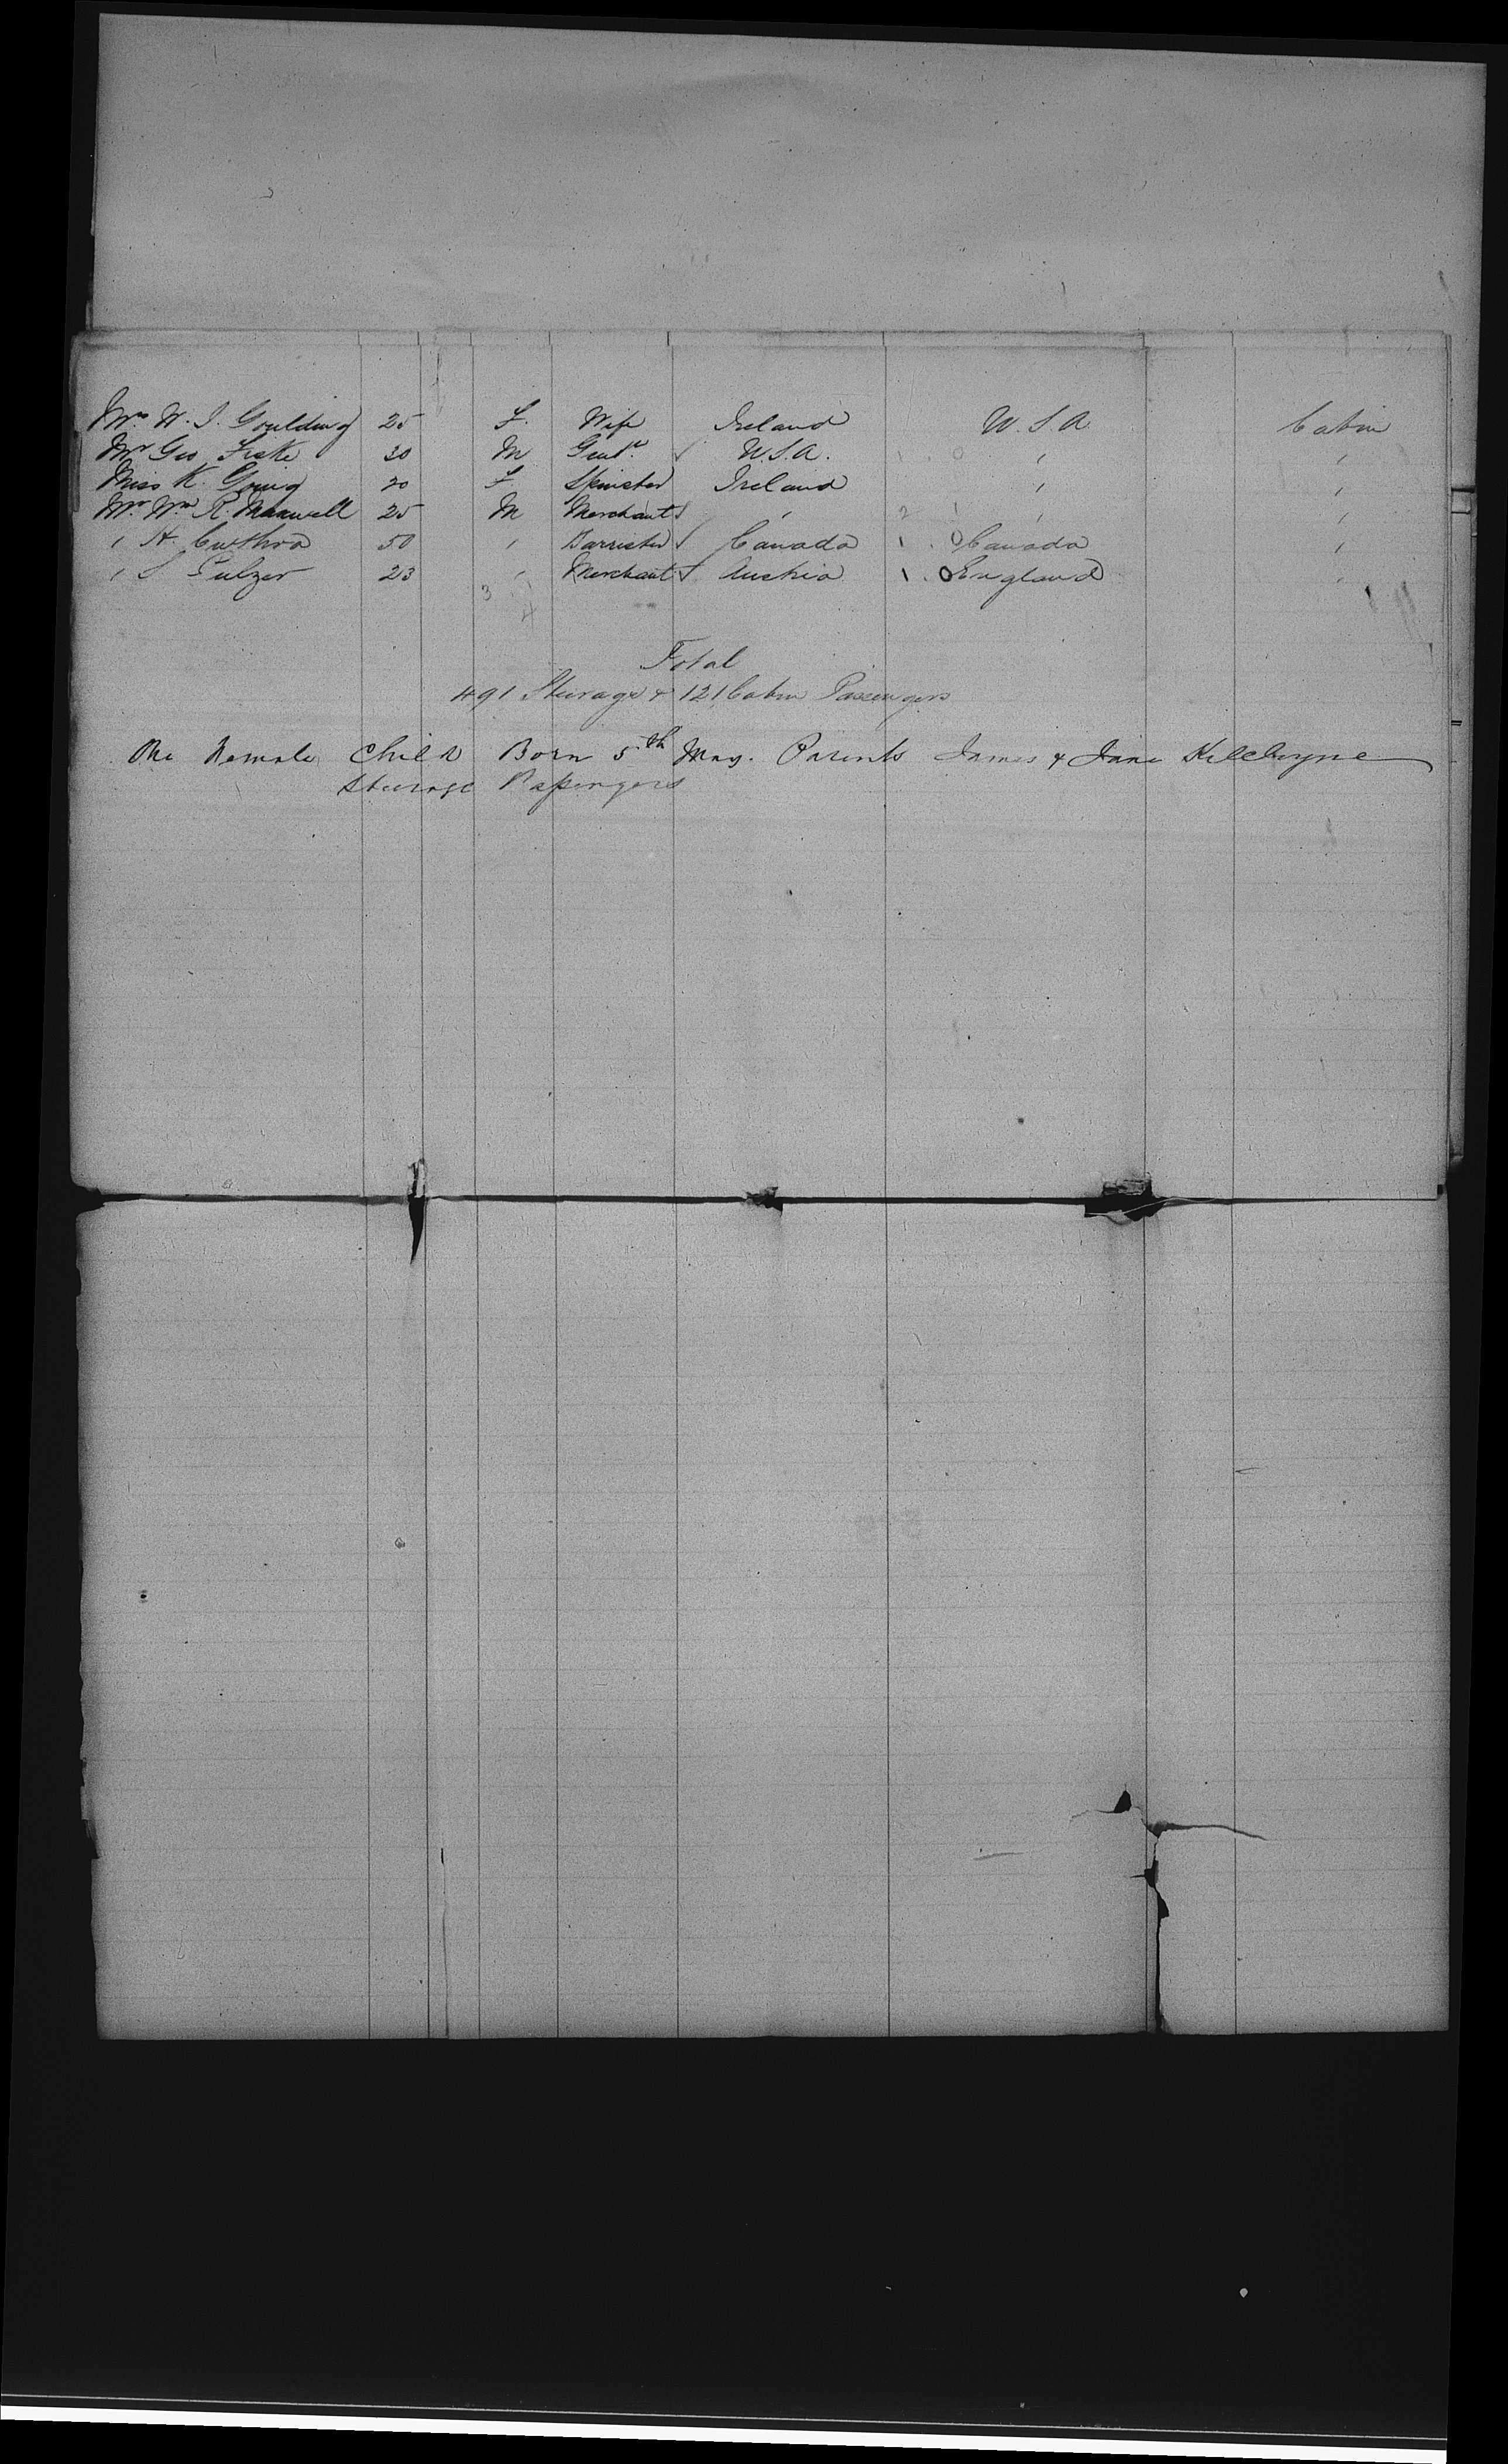 Mrs W. J. Goulding 25 F. Wife Ireland U.S.A. Cabin
Mr Geo Fiske 30 M Gentn U.S.A. 1 . 0 " "
Miss K. Going 20 F Spinster Ireland " "
Mr Wm R. Maxwell 25 M Merchant " 2 " "
" H. Cawthra 50 " Barrister Canada 1 . 0 Canada "
" S Pulzer 23 " Merchant Austria 1 . 0 England "
3
4
Total
491 Steerage & 121 Cabin Passengers
One Female Child Born 5th May. Parents James & Jane
Steerage Passengers